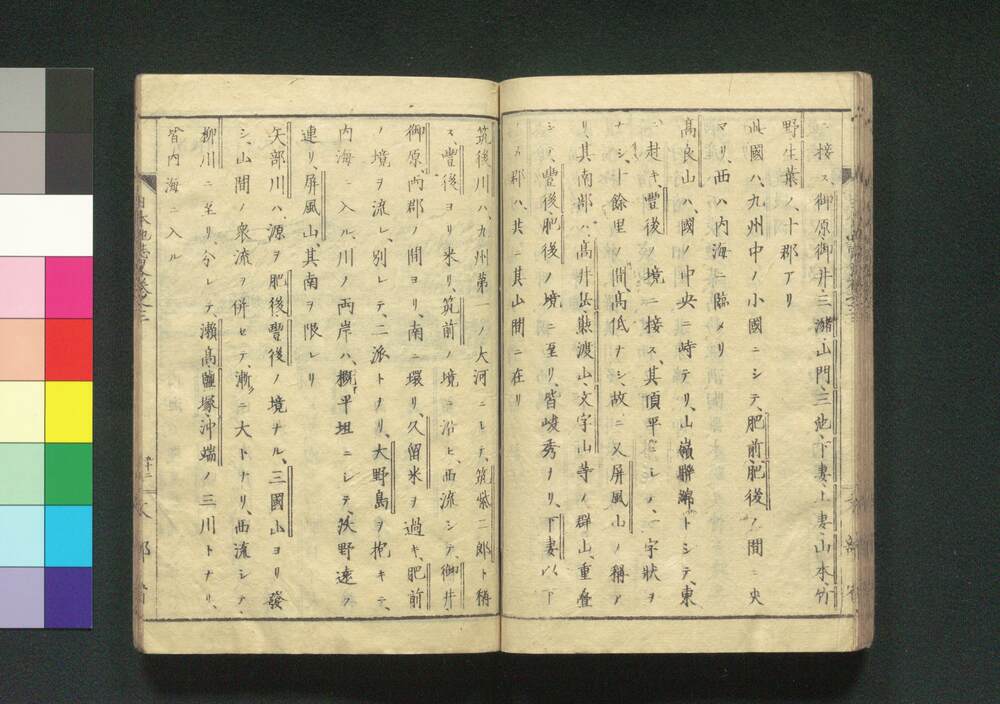 ニ接ス、御原御井、三潴、山門、三池、下妻、上妻、山本、竹
野生葉ノ十郡アリ
此國ハ、九州中ノ小國ニシテ、肥前、肥後ノ間ニ夾
マリ、西ハ内海ニ臨メリ
高良山ハ、國ノ中央ニ峙テリ、山嶺聯綿トシテ、東
ニ赴キ、豐後ノ境ニ接ス、其頂平ニシテ、一字狀ヲ
ナシ、十餘里ノ間、高低ナシ、故ニ又屏風山ノ稱ア
リ、其南部ハ、高井岳、熊渡山、文字山等ノ群山、重疊
シテ、豐後、肥後ノ境ニ至リ、皆峻秀ナリ、下妻以下
ノ郡ハ、共ニ其山間ニ在リ
筑後川ハ、九州第一ノ大河ニシテ、筑紫二郎ト稱
ス、豐後ヨリ來リ、筑前ノ境ニ沿ヒ、西流シテ、御井
御原、兩郡ノ間ヨリ、南ニ環リ、久留米ヲ過キ、肥前
ノ境ヲ流レ、別レテ、二派トナリ、大野島ヲ抱キテ、
内海ニ入ル、川ノ兩岸ハ、概平坦ニシテ、沃野遠ク
連リ、屏風山、其南ヲ限レリ
矢部川ハ、源ヲ肥後、豐後ノ境ナル、三國山ヨリ發
シ、山間ノ衆流ヲ併ヒテ、漸ニ大トナリ、西流シテ、
柳川ニ至リ、分レテ、瀬高、鹽塚、沖端ノ三川トナリ、
皆内海ニ入ル
日本地誌略卷之三
十二
文部省